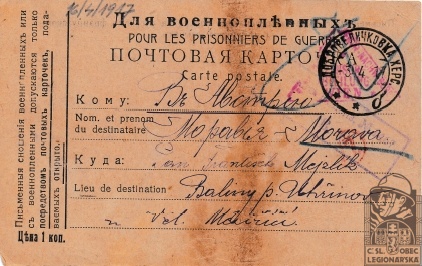 16/4/1917
Для военноплѣнныхъ
POUR LES PRISONNIERS DE GUERRE
ПОЧТОВАЯ КАРТОЧКА
Carte postale.
Кому: Въ Австрію
Nom. et prénom du destinataire
Моравья - Morava
Куда: Pan František
Lieu de destination
Baliny p. Uhřinov
Vel. Meziříčí
Письменныя сношенія военноплѣнныхъ или
съ военноплѣнными допускаются только
посредствомъ почтовыхъ карточекъ, пода-
ваемыхъ открыто.
Цѣна 1 коп.
ДОБРОВЕЛИЧКОВКА ХЕРС.
C. SL. OBEC
LEGIONÁŘSKÁ